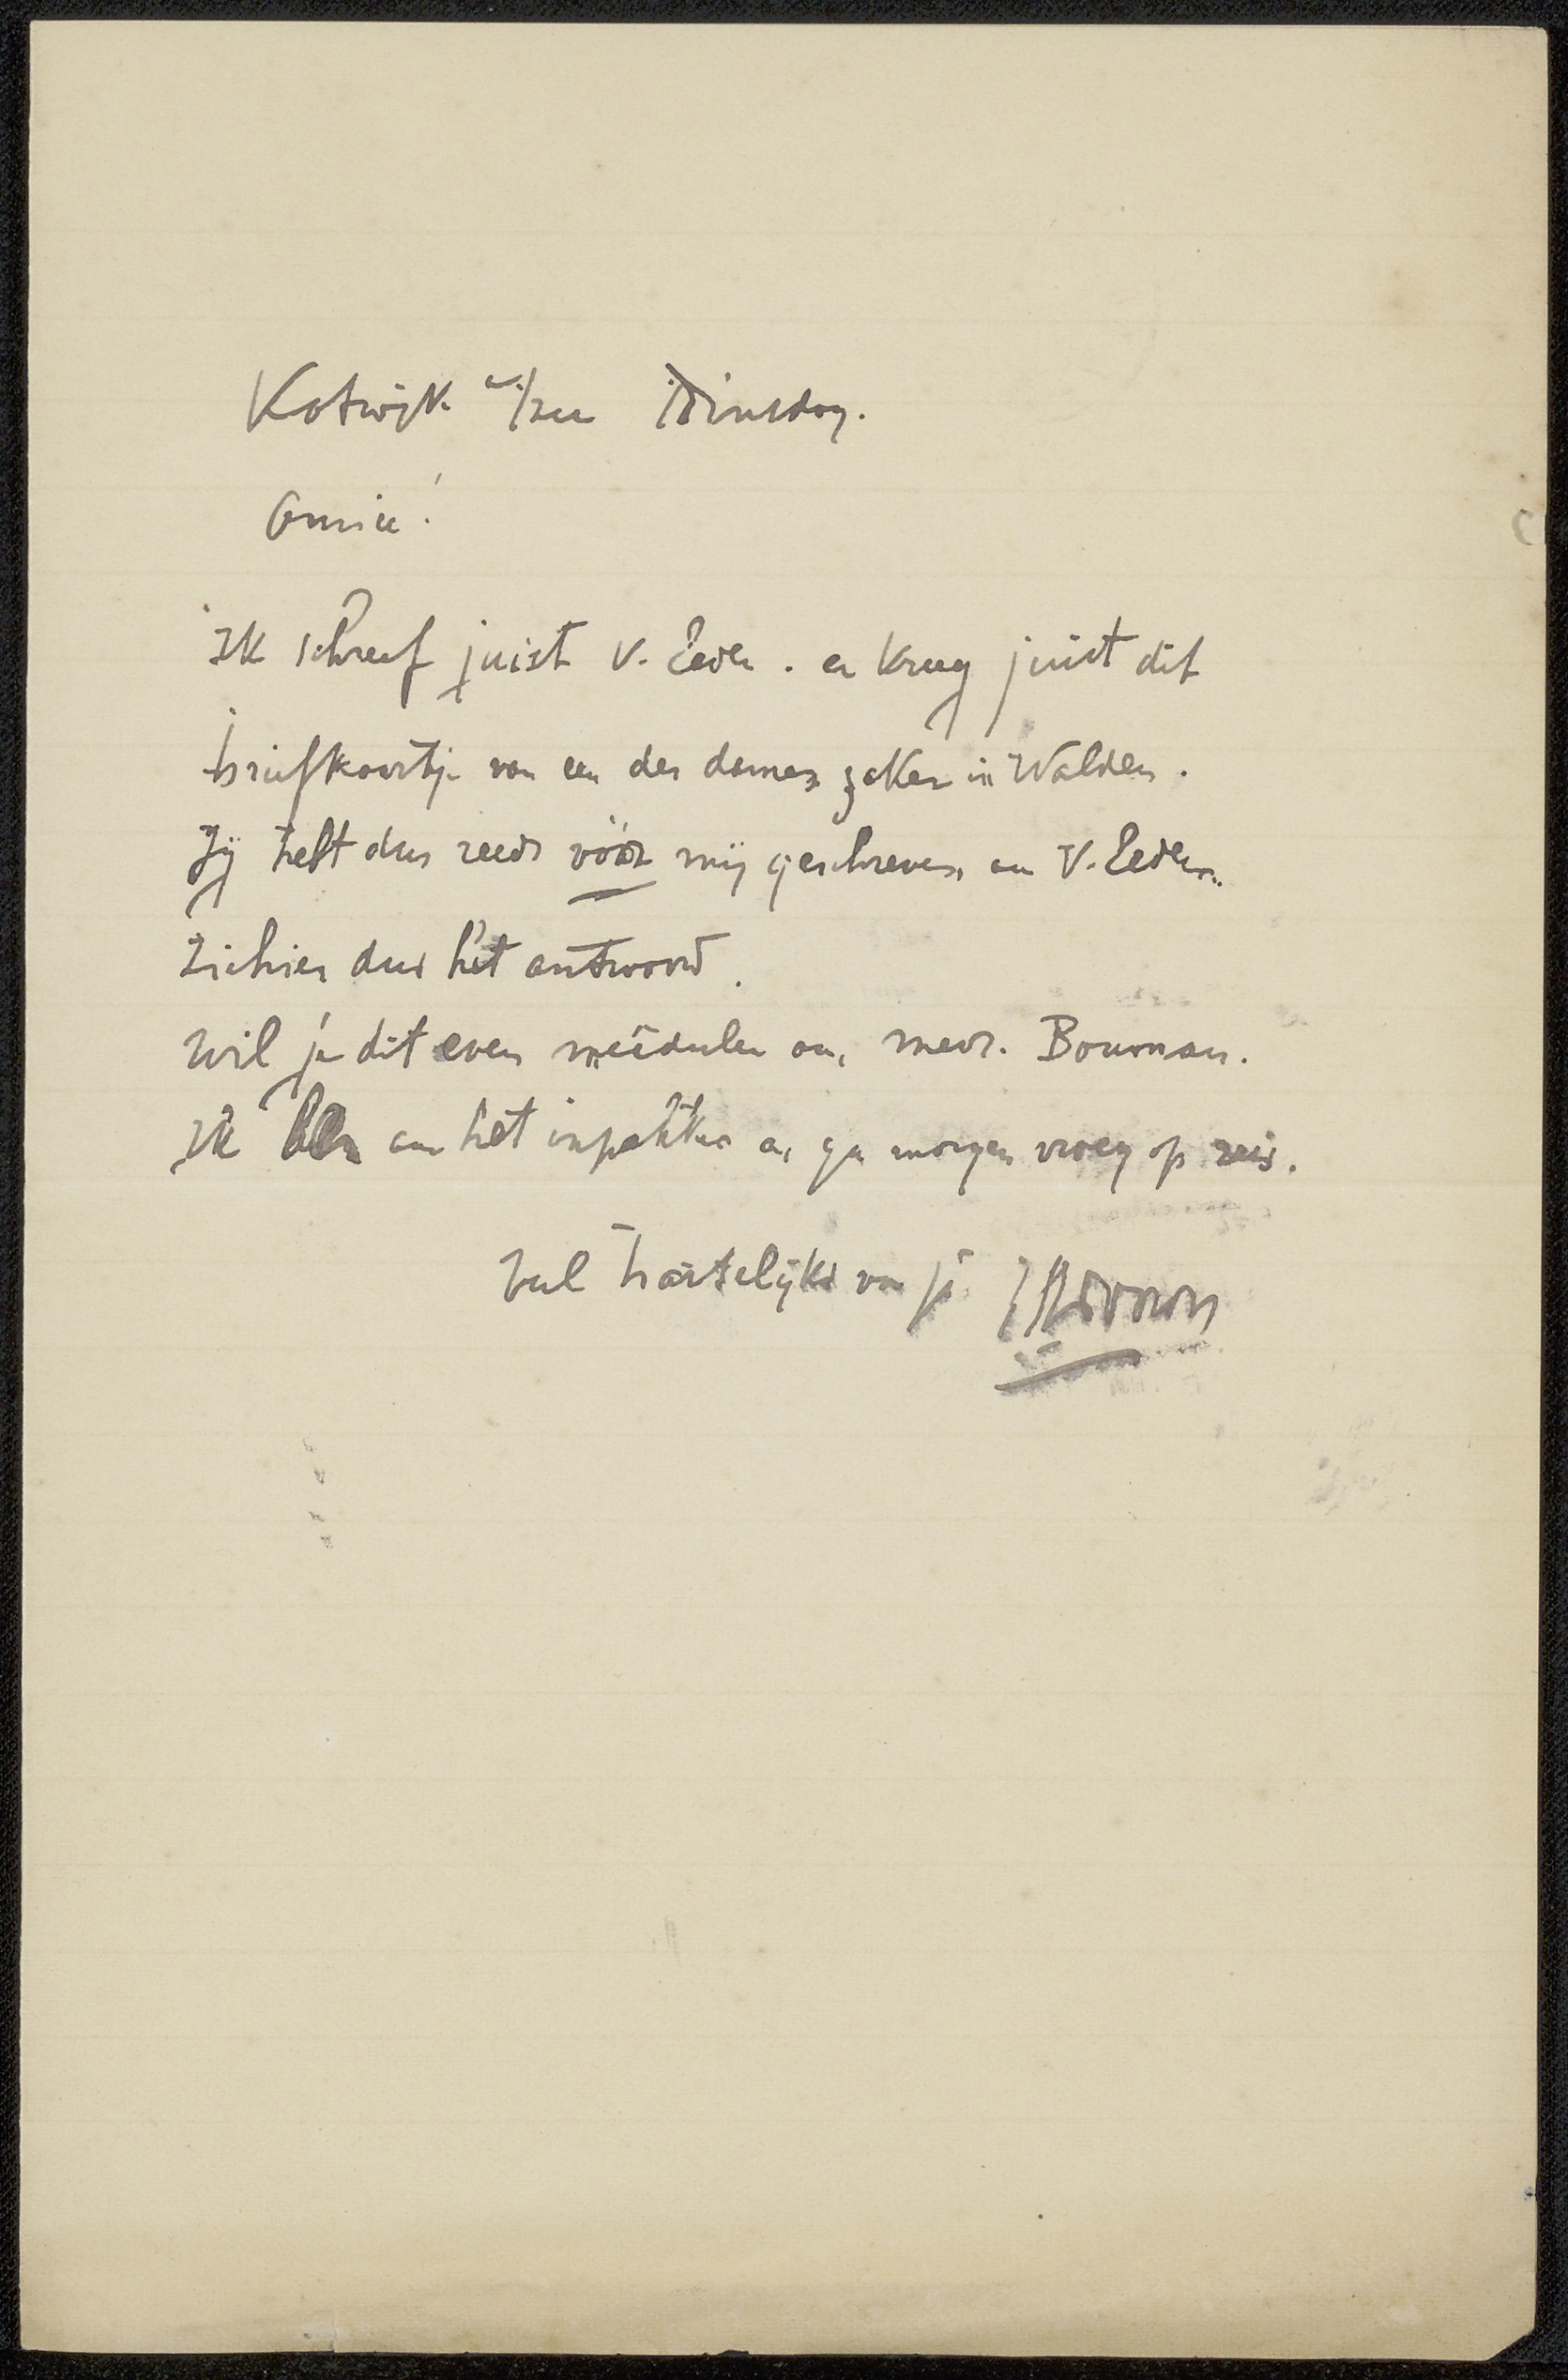 Katwijk a/zee Dinsdag.
Amice!
Ik schreef juist v. Eeden. en kreeg juist dit
briefkaartje van een der dames zaken in Walden.
Jij hebt dus reeds vóór mij geschreven an V. Eeden.
Zichier dus het antwoord.
Wil je dit even meêdeelen an, mevr. Bouman.
Ik ben an het inpakken en ga morgen vroeg op reis.
Veel hartelijks van je